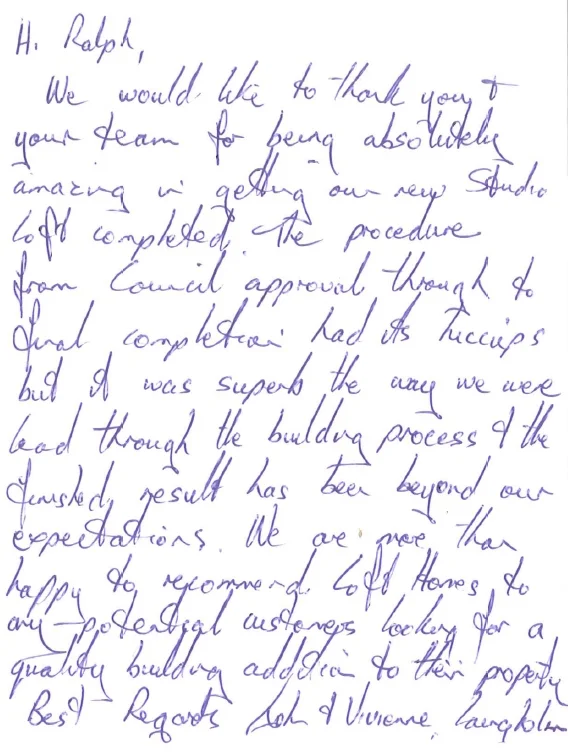 Hi Ralph,
We would like to thank you &
your team for being absolutely
amazing in getting our new Studio
Loft completed. The procedure
from Council approval through to
final completion had its hiccups
but it was superb the way we were
lead through the building process & the
finished result has been beyond our
expectations. We are more than
happy to recommend Loft Homes to
any potential customers looking for a
quality building addition to their property
Best Regards & Vivienne